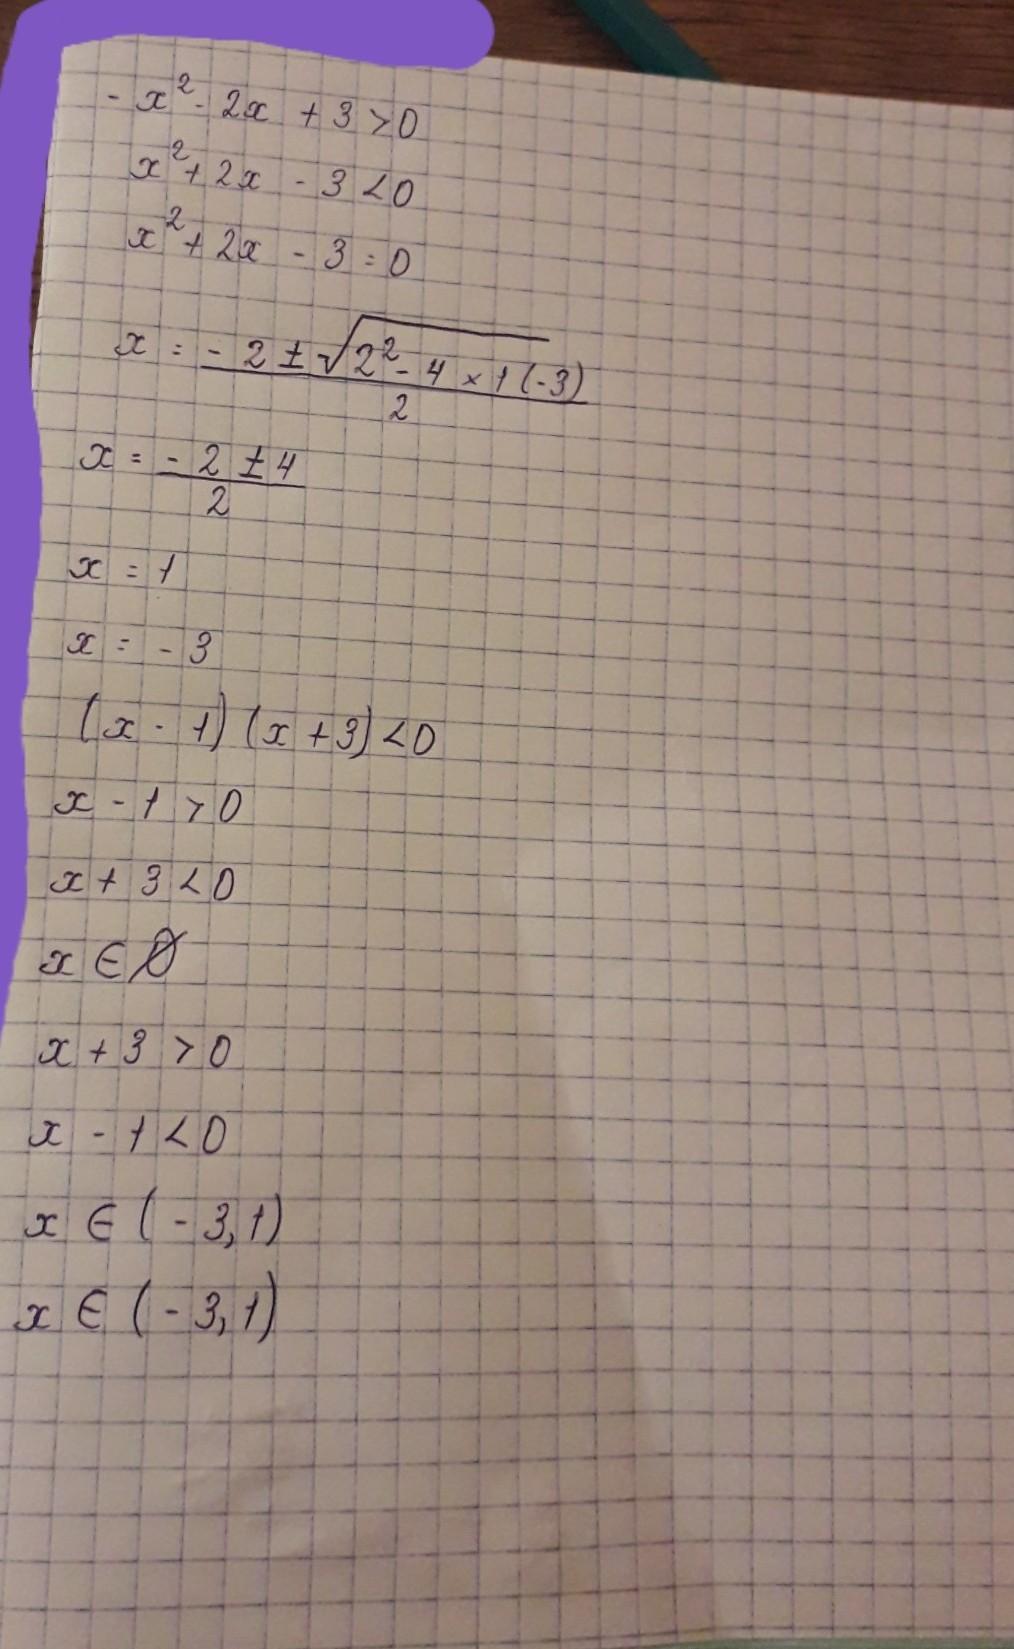 - x² - 2x + 3 > 0
x² + 2x - 3 < 0
x² + 2x - 3 = 0
x = (- 2 ± √(2² - 4 × 1 (-3))) / 2
x = (- 2 ± 4) / 2
x = 1
x = - 3
(x - 1) (x + 3) < 0
x - 1 > 0
x + 3 < 0
x ∈ Ø
x + 3 > 0
x - 1 < 0
x ∈ (- 3, 1)
x ∈ (- 3, 1)